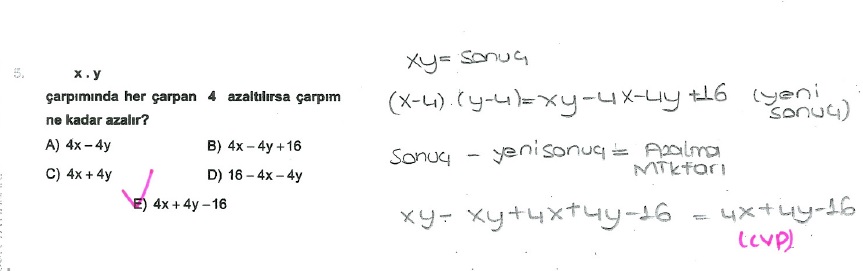 5.
x . y
çarpımında her çarpan 4 azaltılırsa çarpım
ne kadar azalır?
A) 4x – 4y
B) 4x – 4y + 16
C) 4x + 4y
D) 16 – 4x – 4y
E) 4x + 4y – 16
xy = sonuç
(x-4).(y-4)=xy-4x-4y+16 (yeni sonuç)
Sonuç - yeni sonuç = Azalma Miktarı
xy - xy+4x+4y-16 = 4x+4y-16
(cvp)